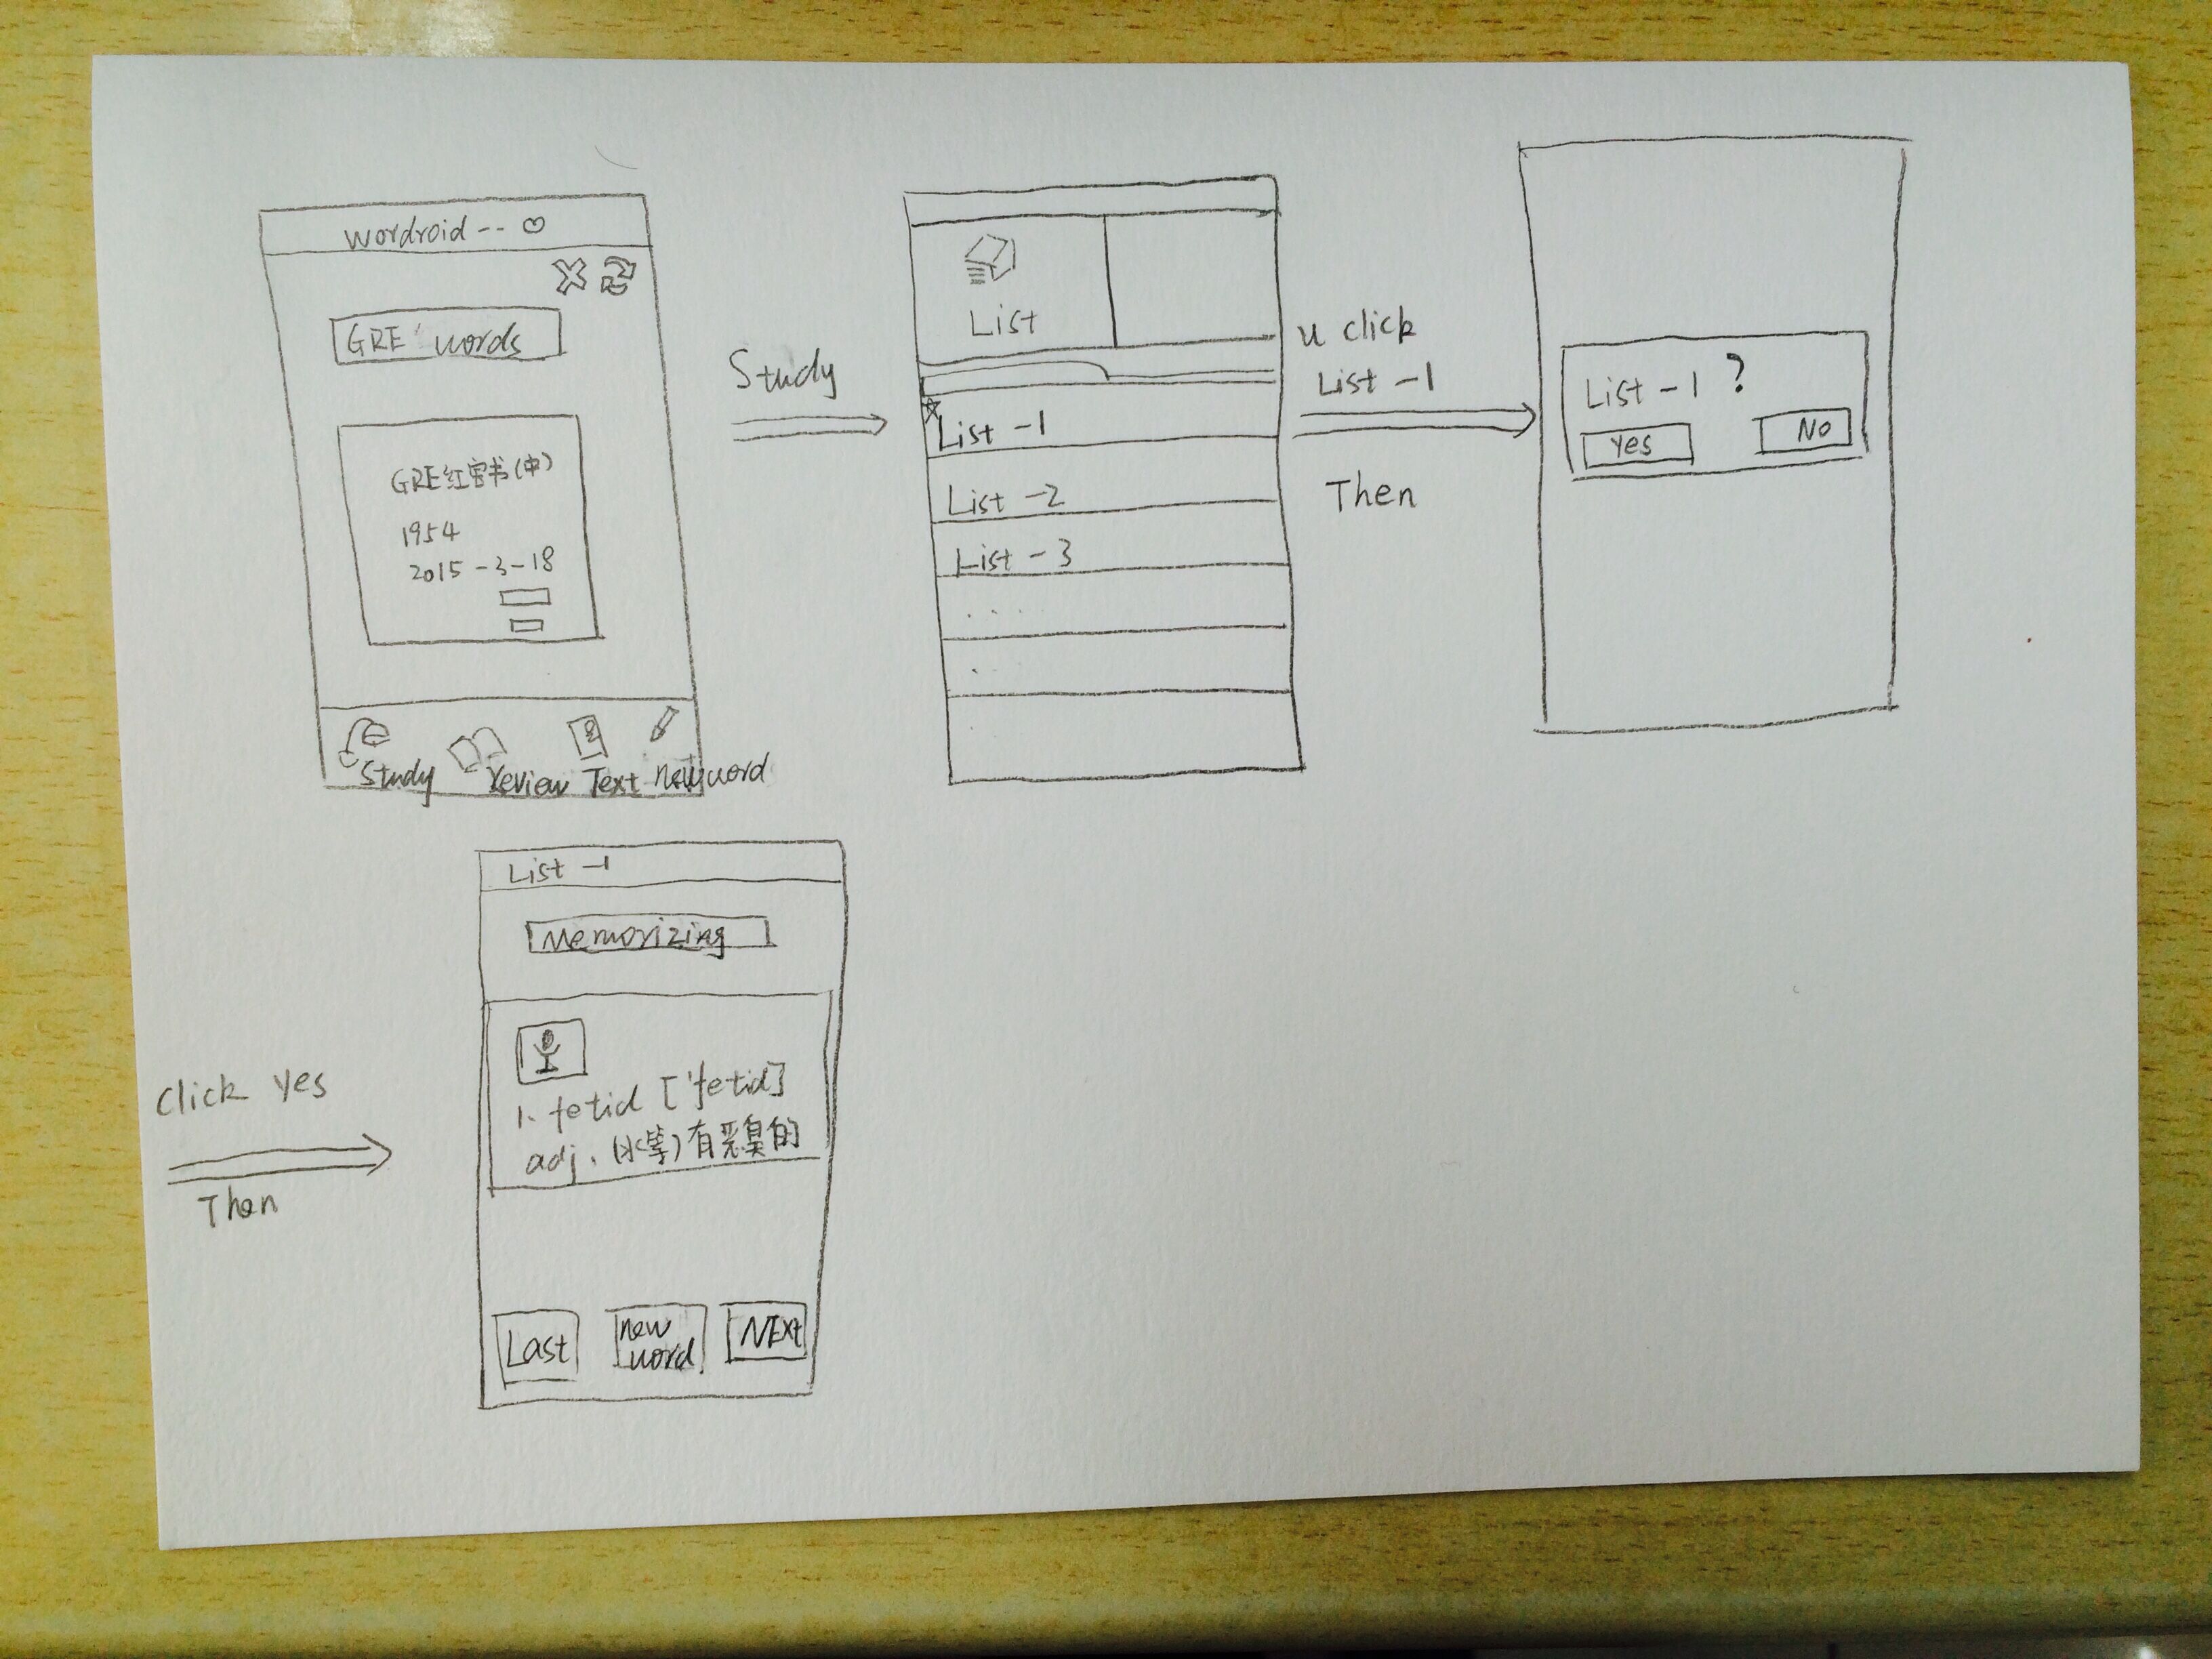 wordroid --
GRE words
GRE红宝书(中)
1954
2015-3-18
Study
review
Text
new word
Study
List
List -1
List -2
List -3
. . . .
.
.
u click
List -1
Then
List -1 ?
Yes
No
Click Yes
Then
List -1
Memorizing
1、fetid ['fetid]
adj、(水等)有恶臭的
Last
new
word
NEXt